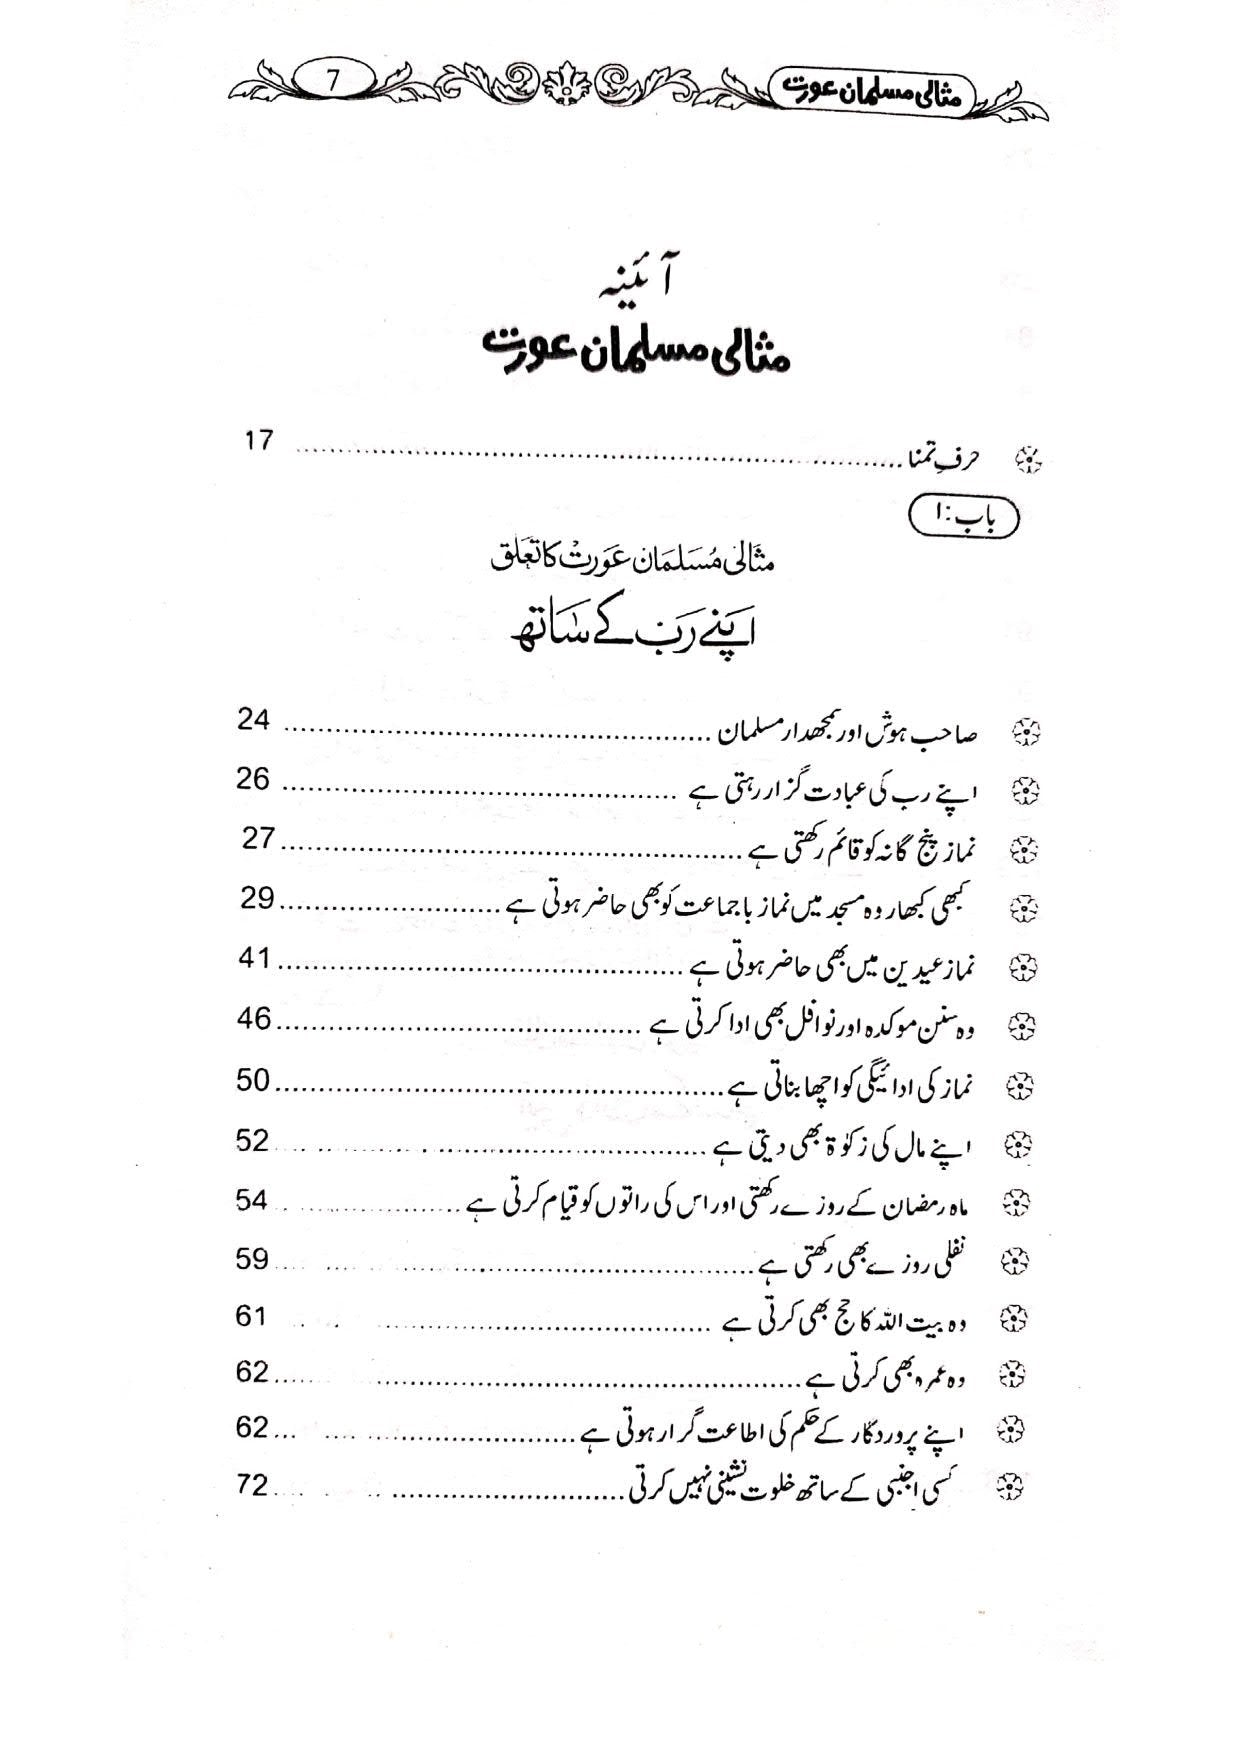 مثالی مسلمان عورت 7
آئینہ
مثالی مسلمان عورت
حرفِ تمنا 17
باب:۱
مثالی مُسلمان عورت کا تعلق
اپنے رب کے ساتھ
صاحب ہوش اور سمجھدار مسلمان 24
اپنے رب کی عبادت گزار رہتی ہے 26
نماز پنج گانہ کو قائم رکھتی ہے 27
کبھی کبھار وہ مسجد میں نماز باجماعت کو بھی حاضر ہوتی ہے 29
نماز عیدین میں بھی حاضر ہوتی ہے 41
وہ سنن موکدہ اور نوافل بھی ادا کرتی ہے 46
نماز کی ادائیگی کو اچھا بناتی ہے 50
اپنے مال کی زکوٰۃ بھی دیتی ہے 52
ماہ رمضان کے روزے رکھتی اور اس کی راتوں کو قیام کرتی ہے 54
نفلی روزے بھی رکھتی ہے 59
وہ بیت اللہ کا حج بھی کرتی ہے 61
وہ عمرہ بھی کرتی ہے 62
اپنے پروردگار کے حکم کی اطاعت گزار ہوتی ہے 62
کسی اجنبی کے ساتھ خلوت نشینی نہیں کرتی 72